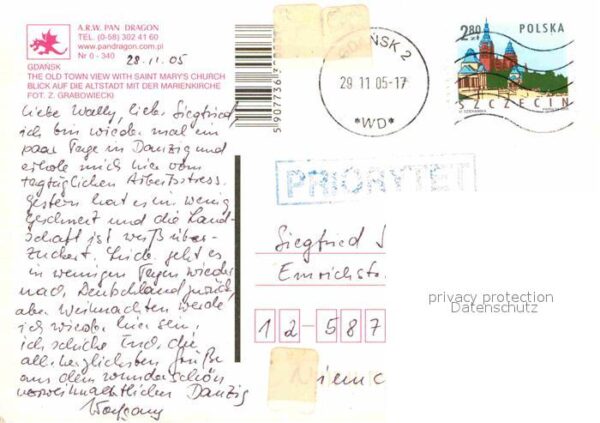 A.R.W. PAN DRAGON
TEL. (0-58) 302 41 60
www.pandragon.com.pl
Nr 0 - 340
28.11.05
GDAŃSK
THE OLD TOWN VIEW WITH SAINT MARY'S CHURCH
BLICK AUF DIE ALTSTADT MIT DER MARIENKIRCHE
FOT. Z. GRABOWIECKI
Liebe Wally, lieber Siegfried!
ich bin wieder mal ein
paar Tage in Danzig und
erhole mich hier vom
tagtäglichen Arbeitsstress.
Gestern hat es ein wenig
geschneit und die Land-
schaft ist weiß über-
zuckert. geht es
in wenigen Tagen wieder
nach Deutschland zurück,
aber Weihnachten werde
ich wieder hier sein.
ich schicke Euch die
allerherzlichsten Grüße
aus dem wunderschön
vorweihnachtlichen Danzig
Wolfgang
5 907736
GDAŃSK 2
29 11 05-17
*WD*
2,80 zł
POLSKA
SZCZECIN
PRIORYTET
Siegfried
Emrichstr.
12-587
Niemc
privacy protection
Datenschutz